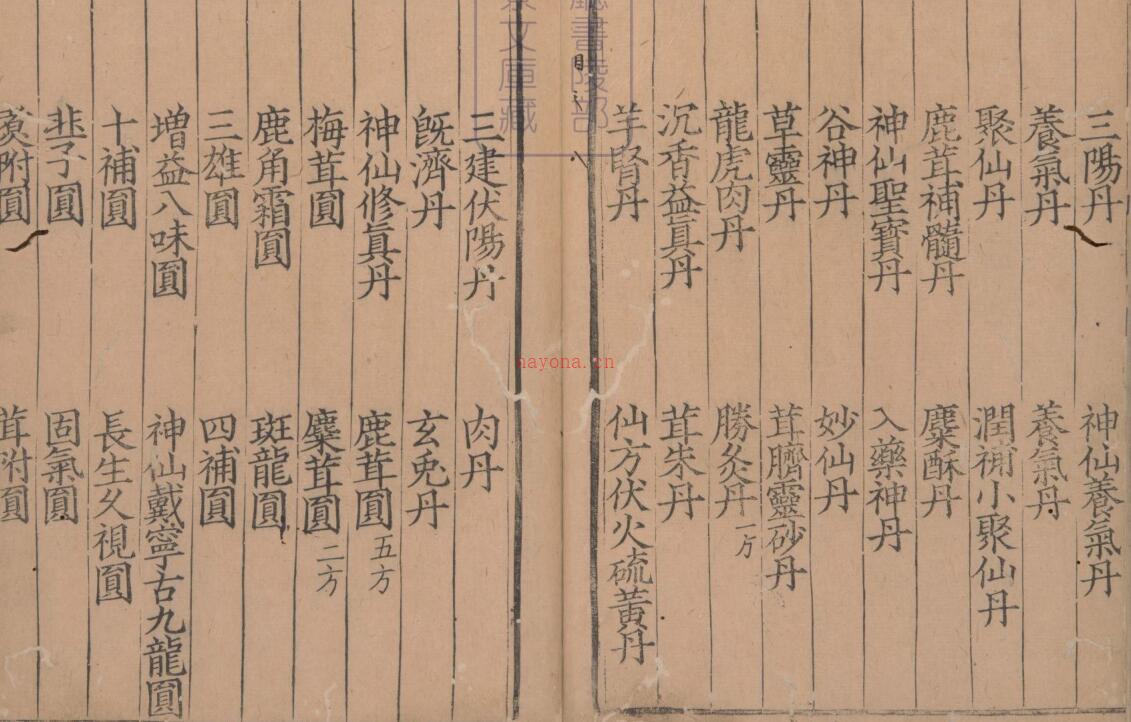 三陽丹 神仙養氣丹
養氣丹 養氣丹
聚仙丹 潤補小聚仙丹
鹿茸補髓丹 麋酥丹
神仙聖寶丹 入藥神丹
谷神丹 妙仙丹
草靈丹 茸臍靈砂丹
龍虎肉丹 勝灸丹一方
沉香益真丹 茸朱丹
羊腎丹 仙方伏火硫黃丹
三建伏陽丹 肉丹
既濟丹 玄兎丹
神仙修真丹 鹿茸圓五方
梅茸圓 麋茸圓二方
鹿角霜圓 斑龍圓
三雄圓 四補圓
增益八味圓 神仙戴寧古九龍圓
十補圓 長生久視圓
韭子圓 固氣圓
附圓 茸附圓
廳書陵部
文庫藏
nayona.cn